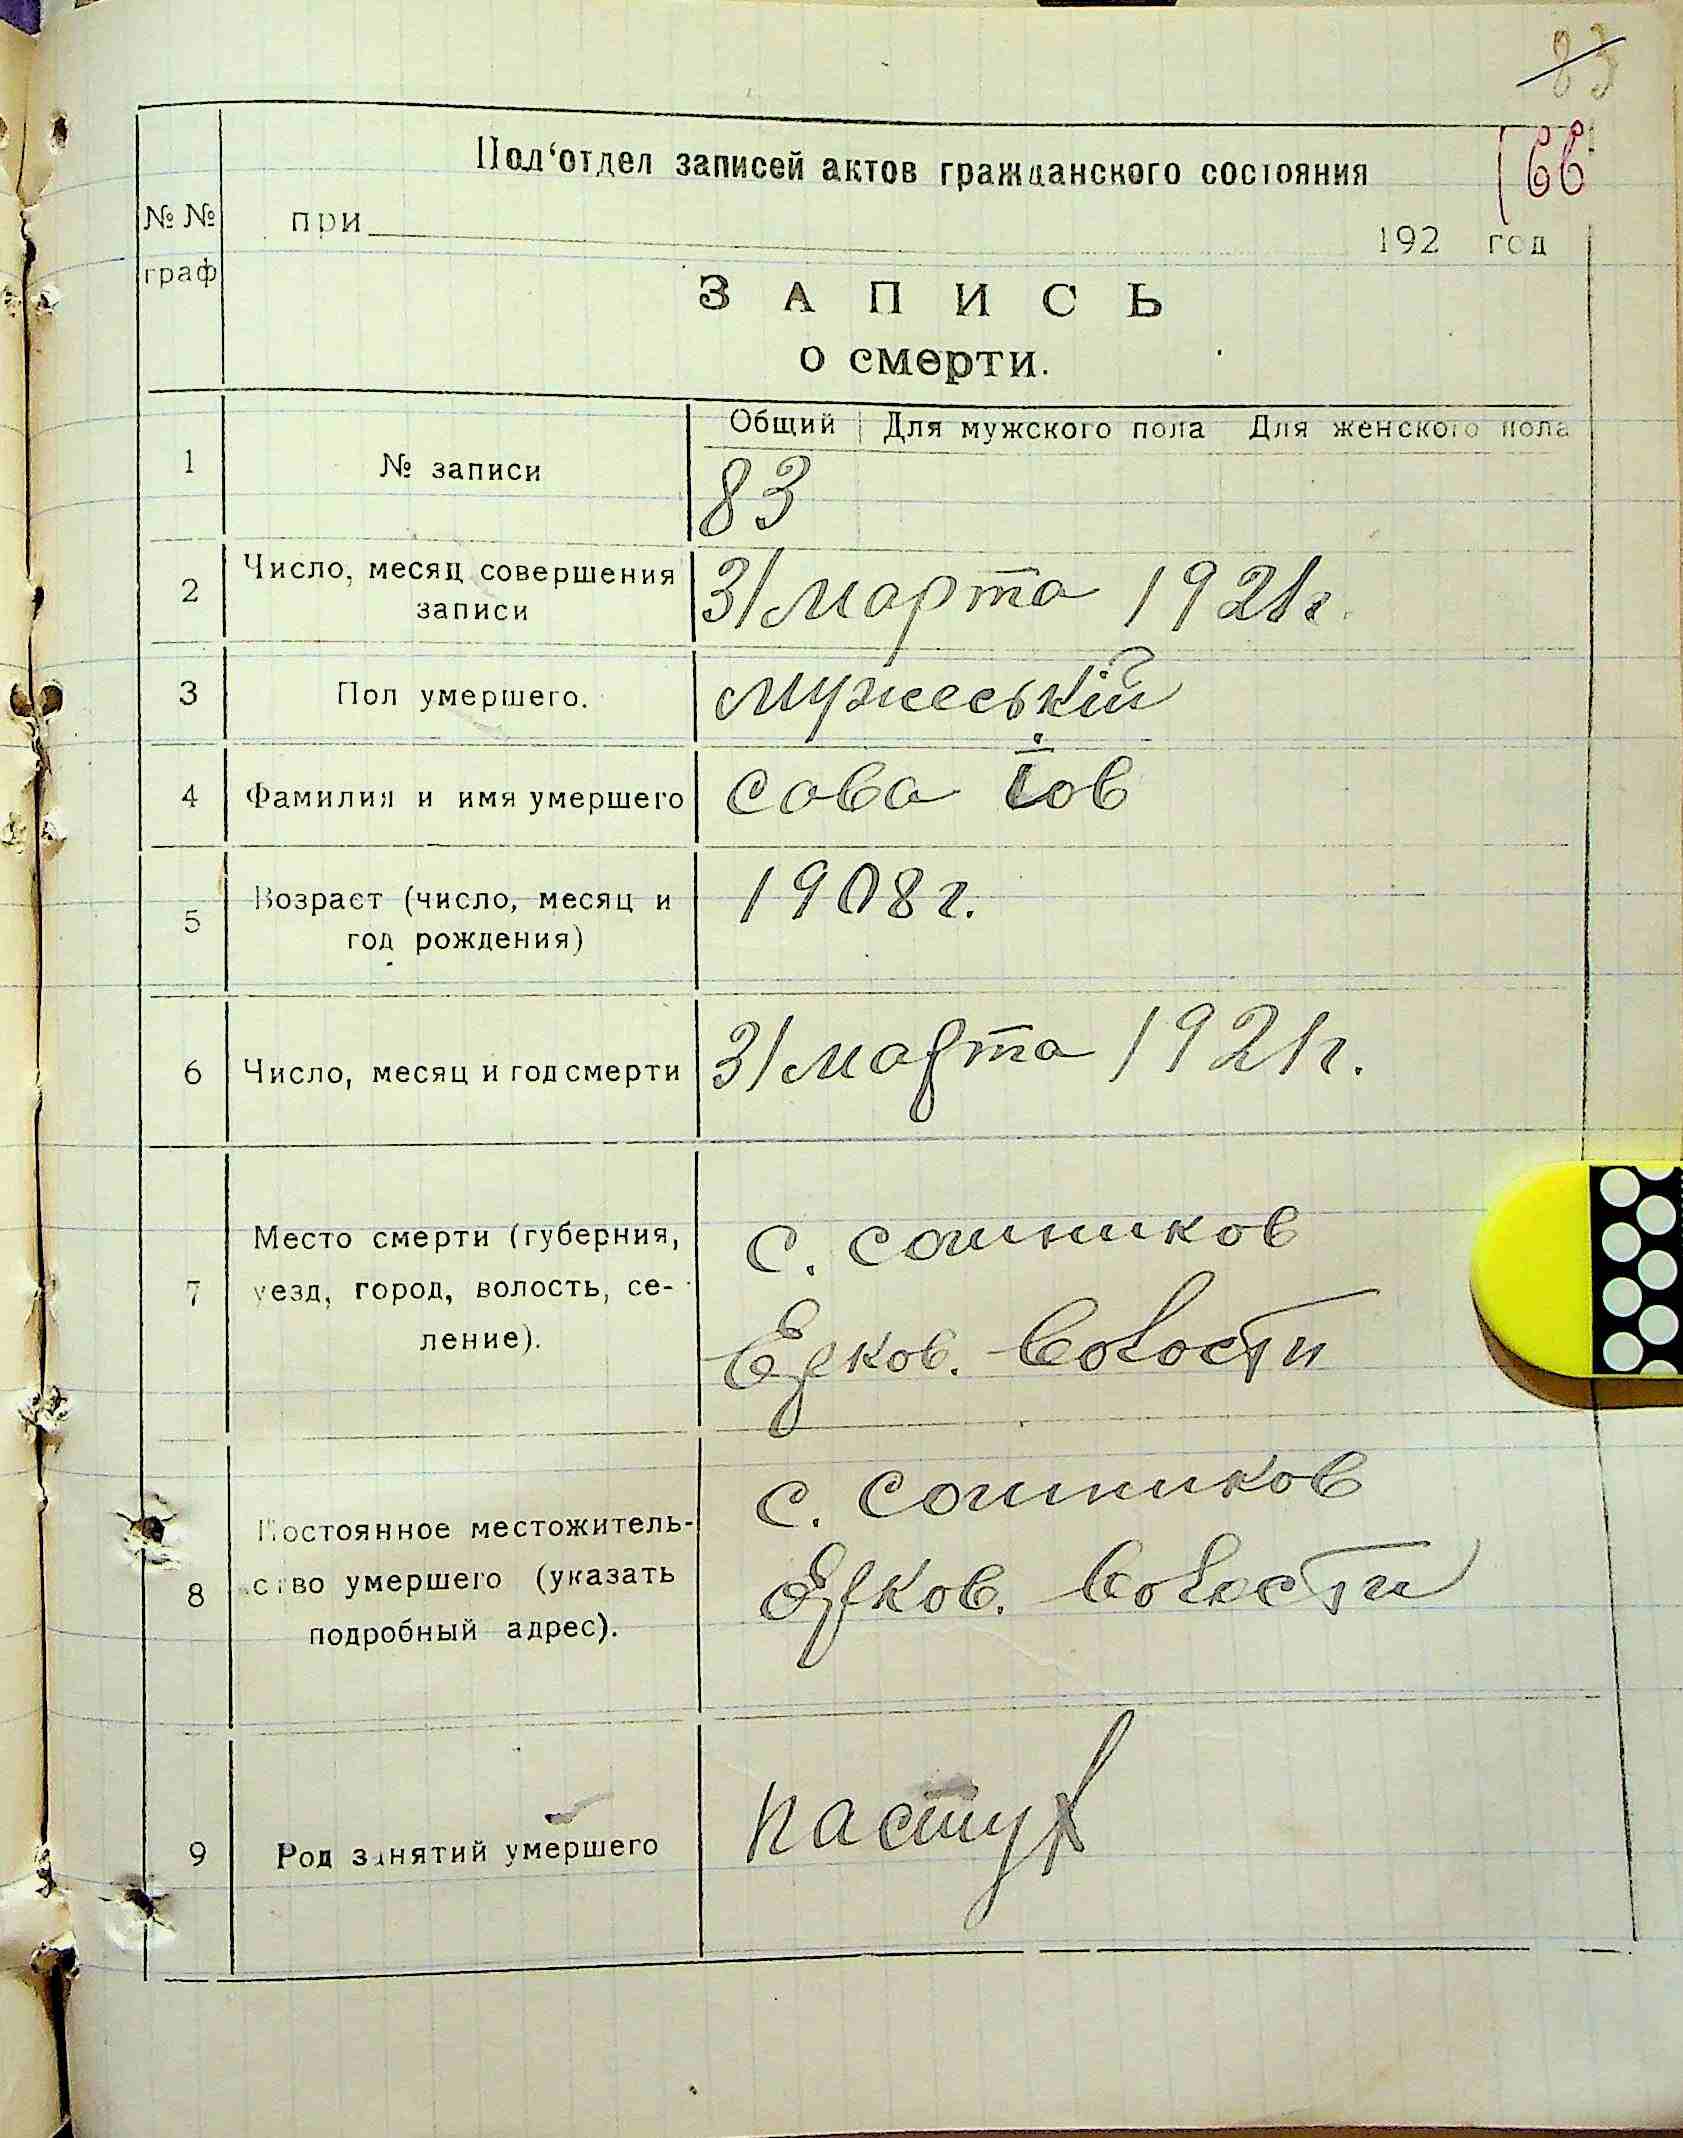 83
166
Под‘отдел записей актов гражданского состояния
№ № граф
при 192 год
ЗАПИСЬ
о смерти.
Общий Для мужского пола Для женского пола
1 № записи 83
2 Число, месяц совершения записи 31 марта 1921 г.
3 Пол умершего. мужеській
4 Фамилия и имя умершего сова Іов
5 Возраст (число, месяц и год рождения) 1908 г.
6 Число, месяц и год смерти 31 марта 1921 г.
7 Место смерти (губерния, уезд, город, волость, се-
ление).
с. сошников
волости
8 Постоянное местожитель-
ство умершего (указать
подробный адрес).
с. сошников
волости
9 Род занятий умершего пастух